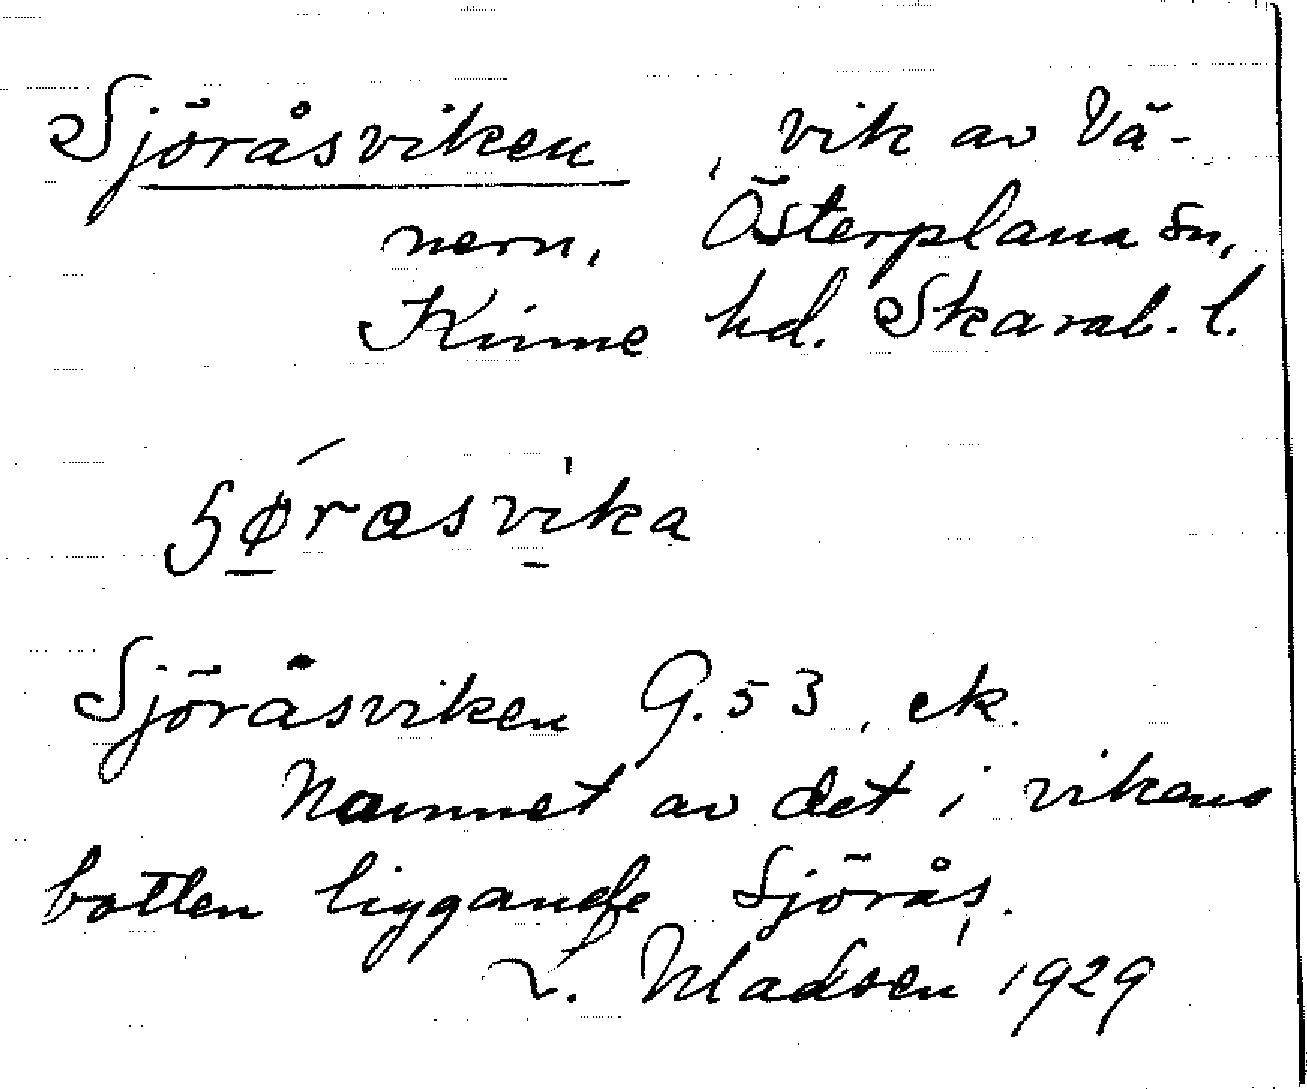 Sjöråsviken, vik av Vä-
nern, Österplana sn,
Kinne hd. Skarab. l.
Sjöråsviken G. 53, ek.
Namnet av det i vikens
botten liggande Sjörås.
L. Madsén 1929